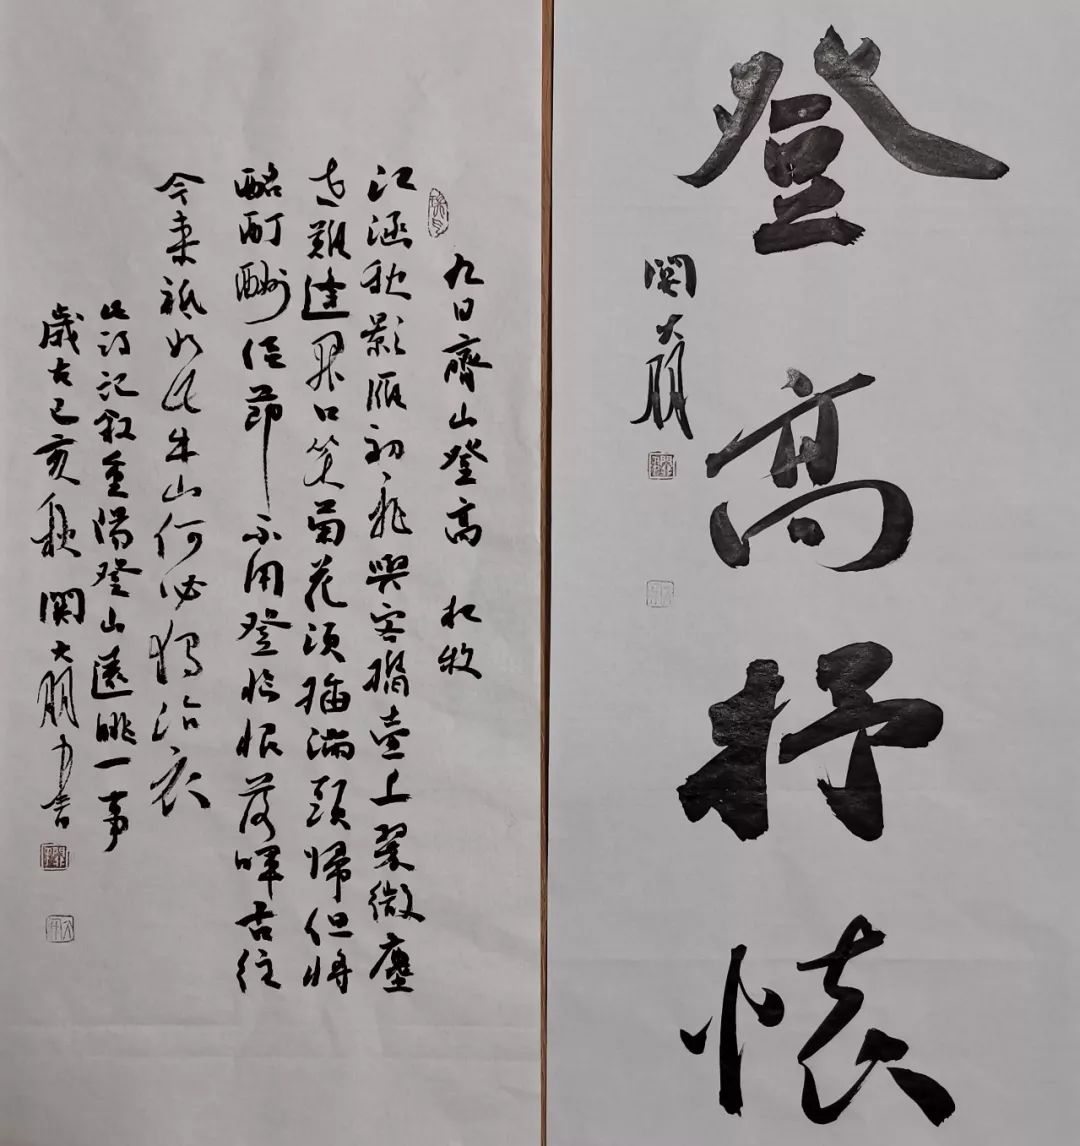 登高抒懷
関大朋
九日齊山登高 杜牧
江涵秋影雁初飛與客攜壺上翠微塵
世難逢開口笑菊花須插滿頭歸但將
酩酊酬佳節不用登臨恨落暉古往
今來祇如此牛山何必獨沾衣
此詩記敘重陽登山遠眺一事
歲在己亥秋関大朋書